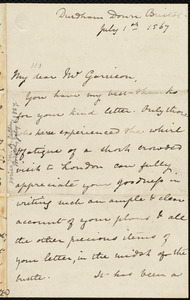 Durdham Down Bristol
July 1st 1867
My dear Mr Garrison,
You have my best thanks
for your kind letter. Only those
who have experienced the whirl
& fatigue of a short crowded
visit to London can fully
appreciate your goodness in
writing such an ample & clear
account of your plans & all
the other precious items of
your letter, in the midst of the
bustle. It has been a